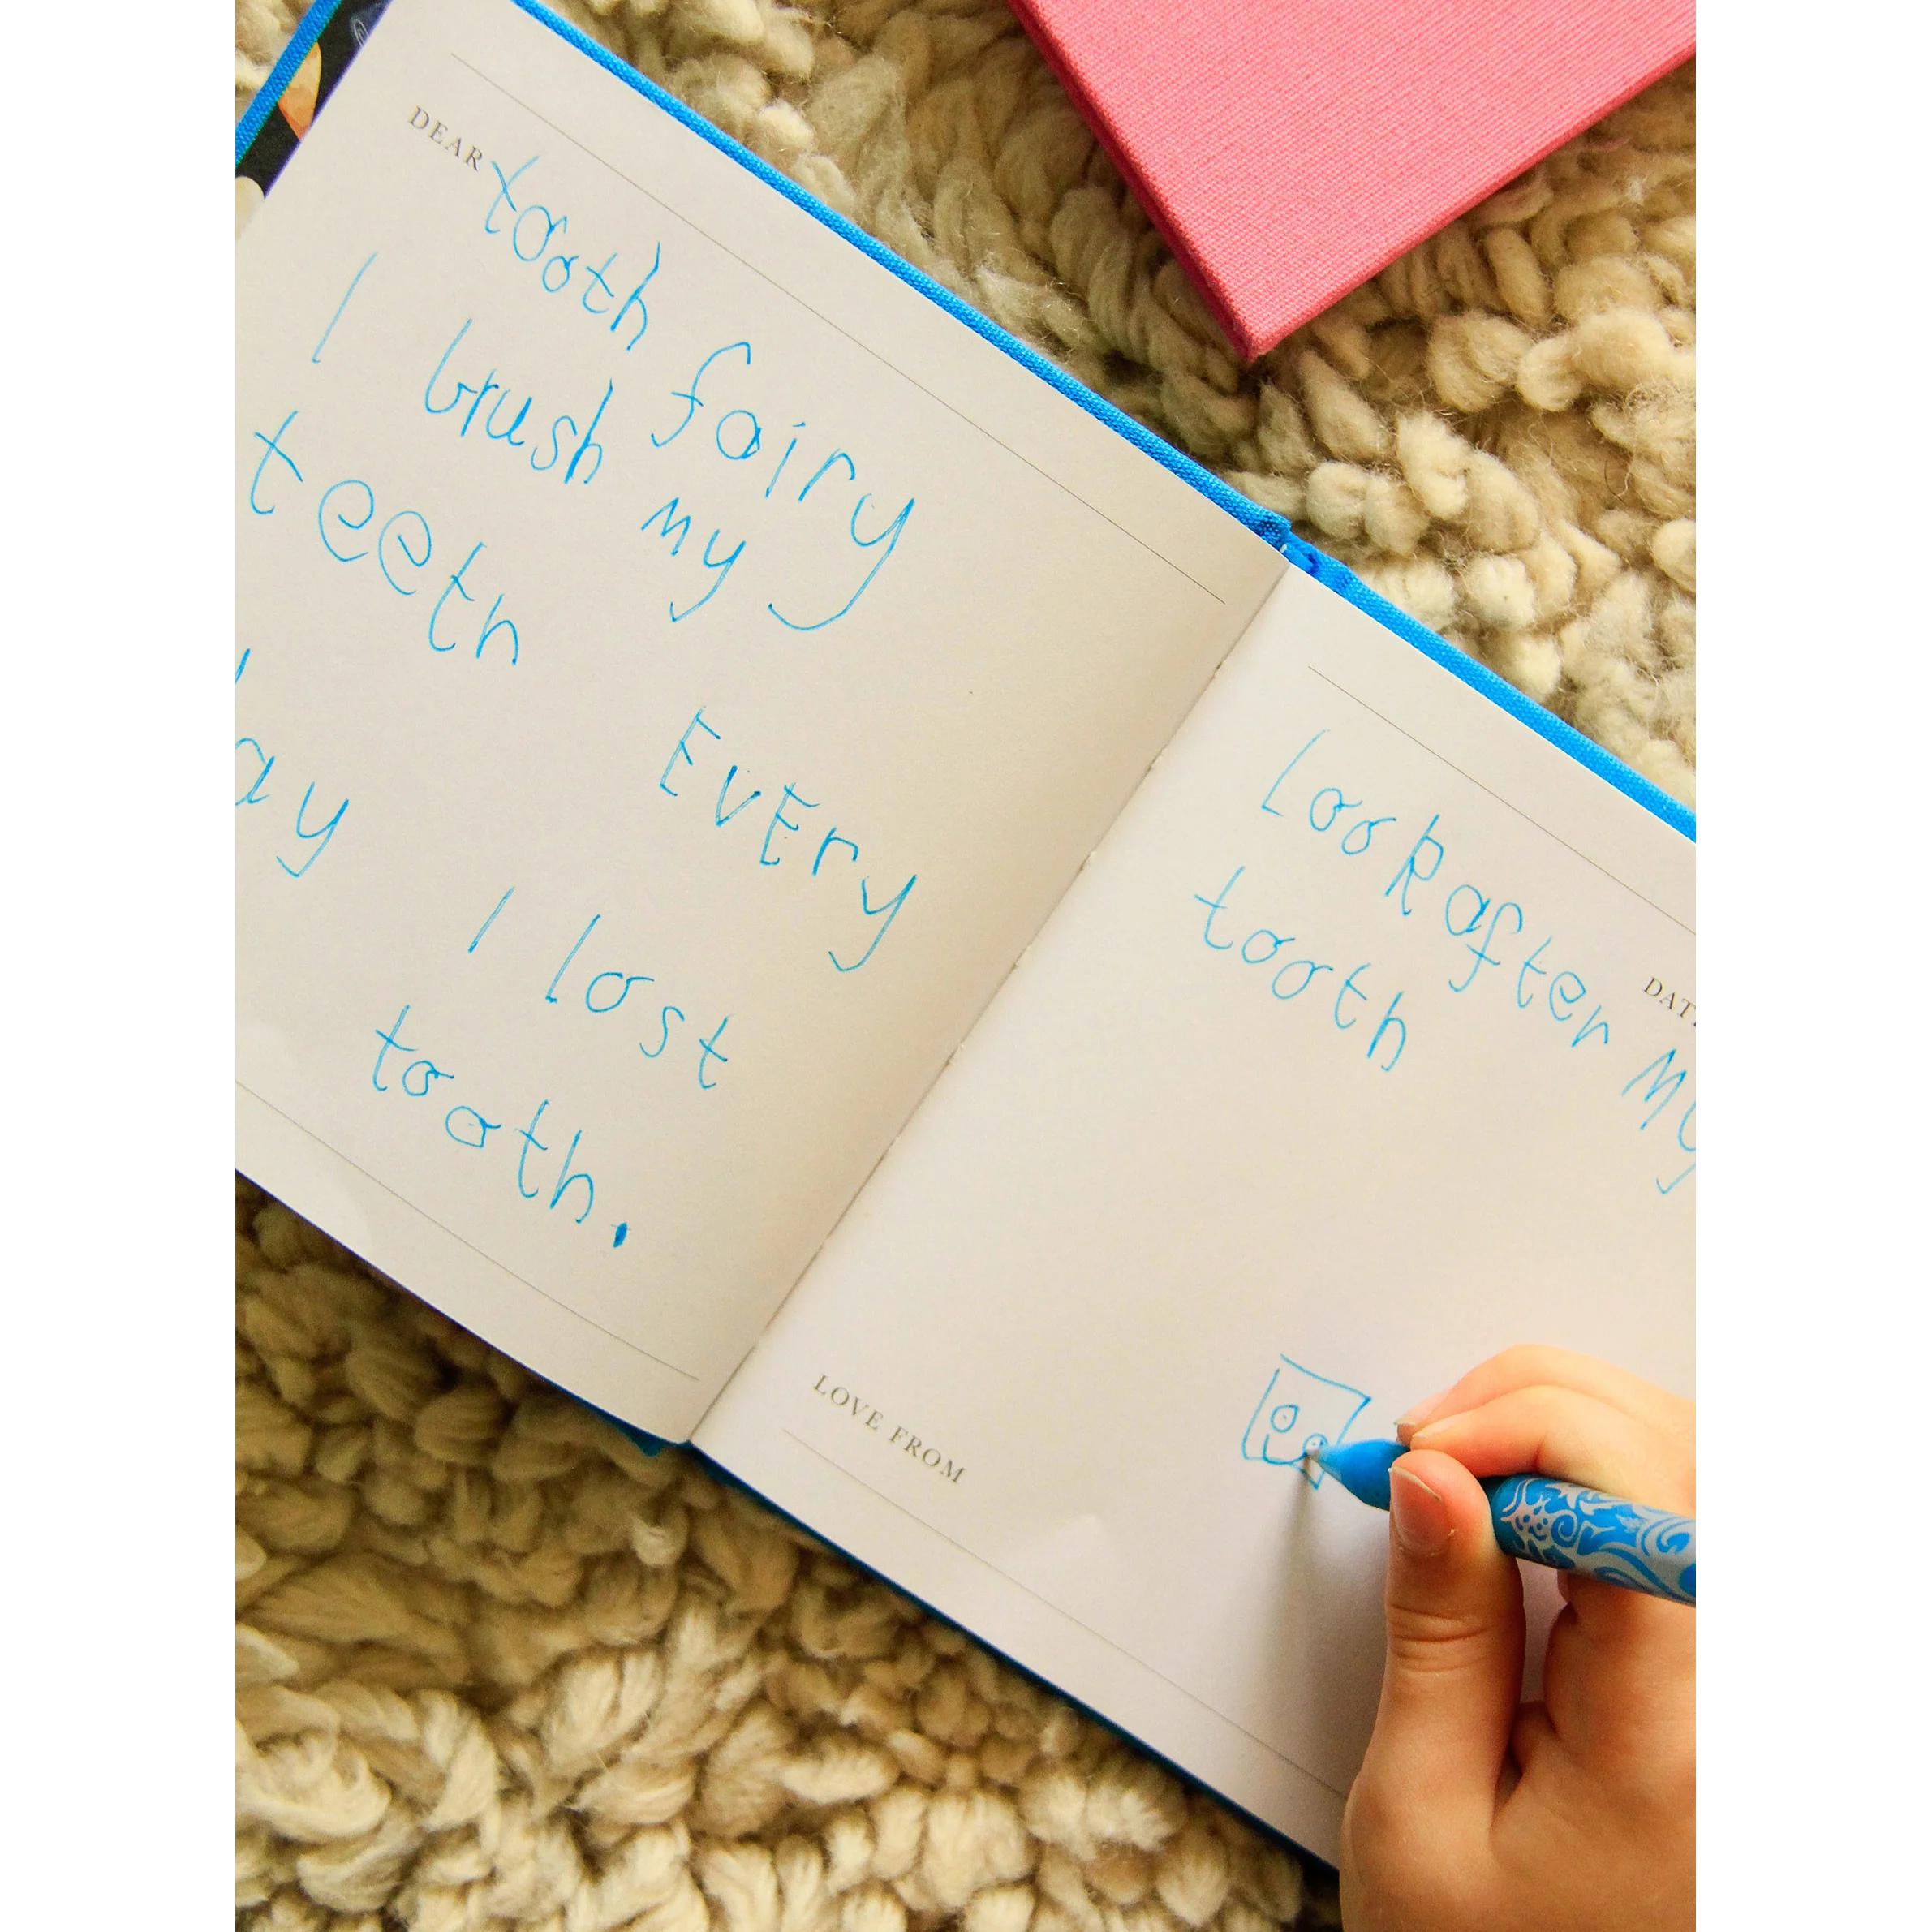 DEAR tooth fairy
I brush my
teeth EVEry
ay I lost
tooth.
DAT
Look after my
tooth
LOVE FROM